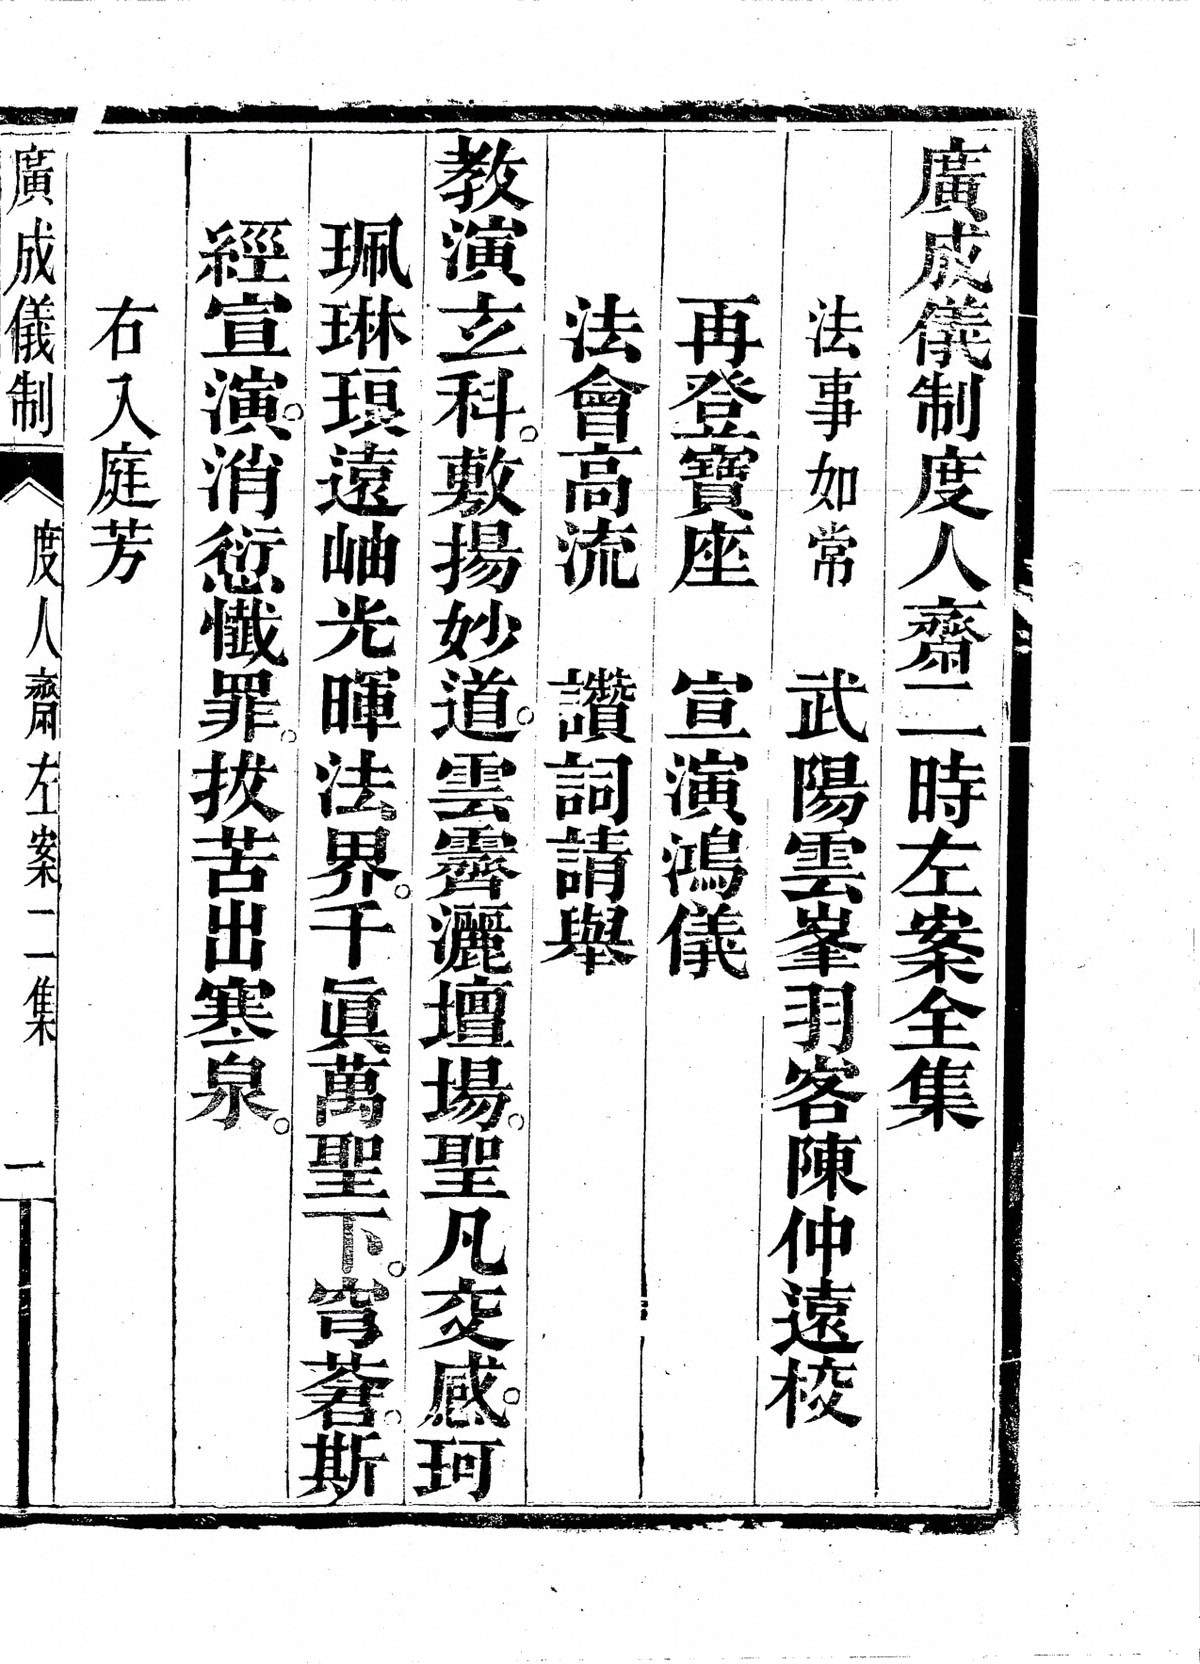 廣成儀制度人齋二時左案全集
法事如常　武陽雲峯羽客陳仲遠校
再登寶座　宣演鴻儀
法會高流　讚詞請舉
教演玄科。敷揚妙道。雲霽灑壇場。聖凡交感。珂
珮琳琅遠岫光暉法界。千眞萬聖下。穹蒼。斯
經宣演。消愆懺罪。拔苦出寒泉。
右入庭芳
廣成儀制　度人齋左案二集　一